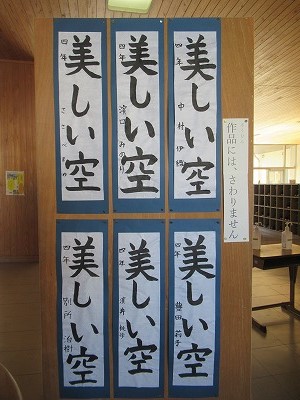 美しい空
四年 中村 伊織
美しい空
四年 濱口 みのり
美しい空
四年
美しい空
四年
美しい空
四年
美しい空
四年 別所
作品には、さわりません